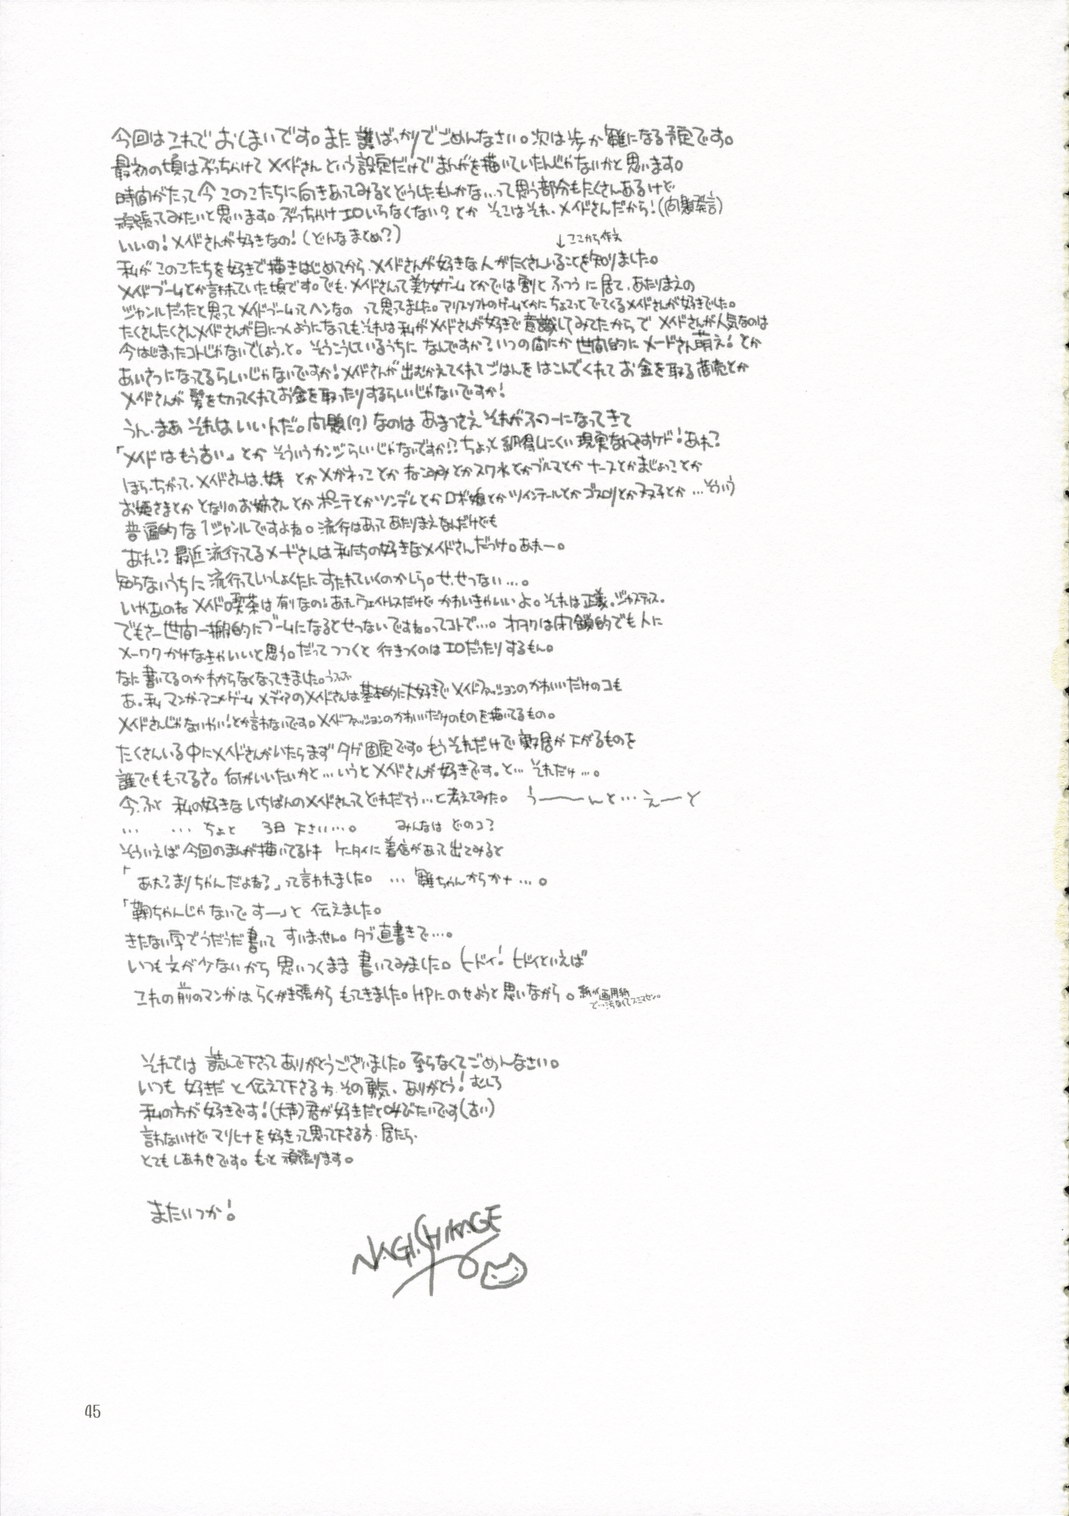 今回はこれでおしまいです。また誰ばっかりでごめんなさい。次は歩か雛になる予定です。
最初の頃はぶっちゃけてメイドさんという設定だけでまんがを描いていたんじゃないかと思います。
時間がたって今このこたちに向きあってみるとどうしたもんかな…って思う部分もたくさんあるけど
頑張ってみたいと思います。ぶっちゃけエロいらなくない?とか そこはそれ、メイドさんだから!(問題発言)
いいの!メイドさんが好きなの!(どんなまとめ?)
↓ここから作文
私がこのこたちを好きで描きはじめてから、メイドさんが好きな人がたくさんいることを知りました。
メイドブームとか言われていた頃です。でも、メイドさんって美少女ゲームとかでは割とふつうに居て、あたりまえの
ジャンルだったと思ってメイドブームってヘンなの って思ってました。アリスソフトのゲームとかにちょこっとでてくるメイドさんが好きでした。
たくさんたくさんメイドさんが目につくようになってもそれは私がメイドさんが好きで意識してみてたからで メイドさんが人気なのは
今はじまったコトじゃないでしょうと。そうこうしているうちに なんですか?いつの間にか世間的にメードさん萌え!とか
あいさつになってるらしいじゃないですか!メイドさんが出むかえてくれてごはんをはこんでくれてお金を取る商売とか
メイドさんが髪を切ってくれてお金を取ったりするらしいじゃないですか!
うん、まあそれはいいんだ。問題(!?)なのは あまつさえそれがふつーになってきて
「メイドはもう古い」とかそういうカンジらしいじゃないですか!?ちょっと納得しにくい現実なんですケド!あれ?
ほら、ちがって、メイドさんは、妹とかメガネっことかねこみみとかスク水とかブルマとかナースとかまじょっことか
お姫さまとかとなりのお姉さんとかポニテとかツンデレとかロボ娘とかツインテールとかゴスロリとか とか…そういう
普遍的な1ジャンルですよね。流行はあってあたりまえなんだけども
あれ!?最近流行ってるメードさんは私たちの好きなメイドさんだっけ。あれー。
知らないうちに流行っていっしょくたにすたれていくのかしら。せ、せつない…。
いやあのねメイド喫茶は有りなの!あれウェイトレスだけどかわいきゃいいよ。それは正義。ジャスティス。
でもさー世間一般的にブームになるとせつないですね。ってコトで…。オタクは閉鎖的でも人に
メーワクかけなきゃいいと思う。だってつつくと行きつくのはエロだったりするもん。
なに書いてるのかわからなくなってきました。うふふ
あ。私マンガ・アニメ・ゲームメディアのメイドさんは基本的に大好きでメイドファッションのかわいいだけのコも
メイドさんじゃないやい!とか言わないです。メイドファッションのかわいいだけのものを描いてるもの。
たくさんいる中にメイドさんがいたらまずタゲ固定です。もうそれだけで敷居が下がるものを
誰でももってるさ。何がいいたいかと…いうとメイドさんが好きです。と…それだけ…。
今、ふと私の好きないちばんのメイドさんってどれだろう…と考えてみた。 うーーーんと…えーと
… …ちょと 3日下さい…。 みんなはどのコ?
そういえば今回のまんが描いてるトキ ケータイに着信があって出てみると
「あれ?まりちゃんだよね?」って言われました。…雛ちゃんからかナ…。
「鞠ちゃんじゃないですー」と伝えました。
きたない字でうだうだ書いてすいません。タブ直書きで…。
いつも文が少ないから思いつくまま書いてみました。ヒドイ!ヒドイといえば
これの前のマンガはらくがき張からもってきました。HPにのせようと思いながら。紙が画用紙で…
それでは読んで下さってありがとうございました。至らなくてごめんなさい。
いつも好きだと伝えて下さる方、その勇気、ありがとう!むしろ
私の方が好きです!(大声)君が好きだと叫びたいです(古い)
言わないけどマリヒナを好きって思って下さる方、居たら、
とてもしあわせです。もっと頑張ります。
またいつか!
NAGI.CHIKAGE
45